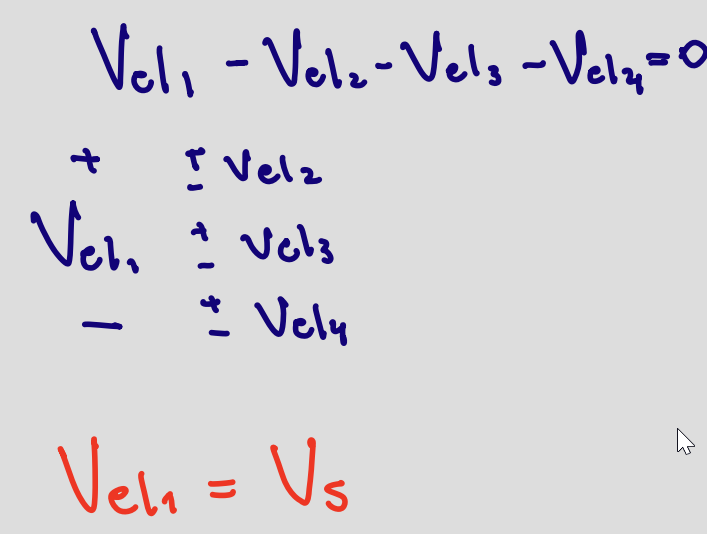 Vel1 - Vel2 - Vel3 - Vel4 = 0
+ ± Vel2
Vel1 ± Vel3
- ± Vel4
Vel1 = Vs